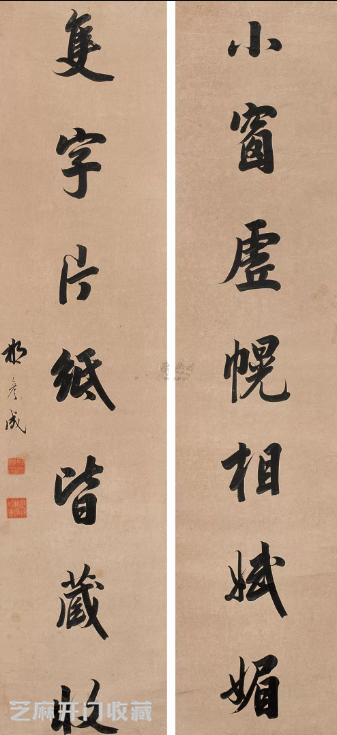 小窗虛幌相娬媚
隻字片紙皆藏收
那彥成
芝麻开门收藏